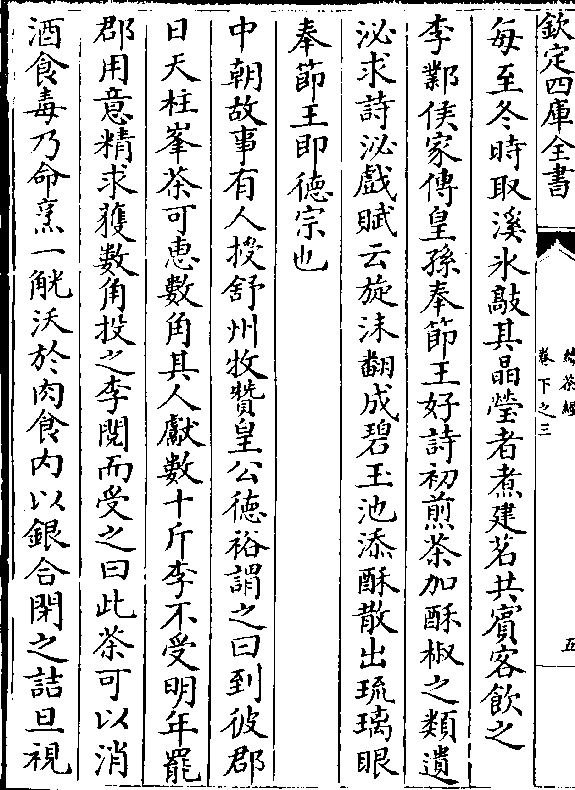 欽定四庫全書
續茶經
卷下之三
五
每至冬時取溪氷敲其晶瑩者煮建茗共賓客飲之
李鄴侯家傳皇孫奉節王好詩初煎茶加酥椒之類遺
泌求詩泌戲賦云旋沫翻成碧玉池添酥散出琉璃眼
奉節王即德宗也
中朝故事有人授舒州牧贊皇公德裕謂之曰到彼郡
日天柱峯茶可惠數角其人獻數十斤李不受明年罷
郡用意精求獲數角投之李閱而受之曰此茶可以消
酒食毒乃命烹一觥沃於肉食内以銀合閉之詰旦視